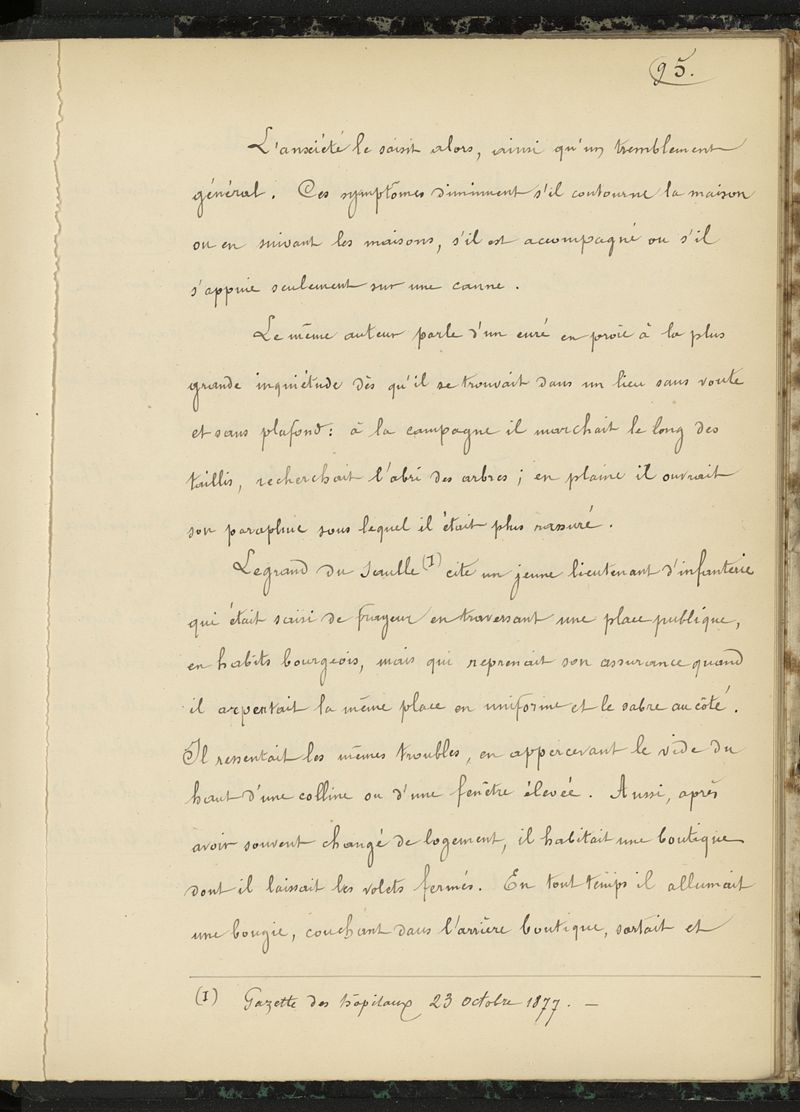 95.
L'anxiété le saisit alors, ainsi qu'un tremblement
général. Ces symptômes diminuent s'il contourne la maison
ou en suivant les maisons, s'il est accompagné ou s'il
s'appuie seulement sur une canne.
Le même auteur parle d'un curé en proie à la plus
grande inquiétude dès qu'il se trouvait dans un lieu sans voute
et sans plafond : à la campagne il marchait le long des
taillis, recherchait l'abri des arbres ; en plaine il ouvrait
son parapluie sous lequel il était plus rassuré.
Legrand du Saulle (1) cite un jeune lieutenant d'infanterie
qui était saisi de frayeur en traversant une place publique,
en habits bourgeois, mais qui reprenait son assurance quand
il arpentait la même place en uniforme et le sabre au côté.
Il ressentait les mêmes troubles, en appercevant le vide du
haut d'une colline ou d'une fenêtre élevée. Aussi, après
avoir souvent changé de logement, il habitait une boutique
dont il laissait les volets fermés. En tout temps il allumait
une bougie, couchant dans l'arrière boutique, sortait et
(1) Gazette des hôpitaux 23 Octobre 1877. —